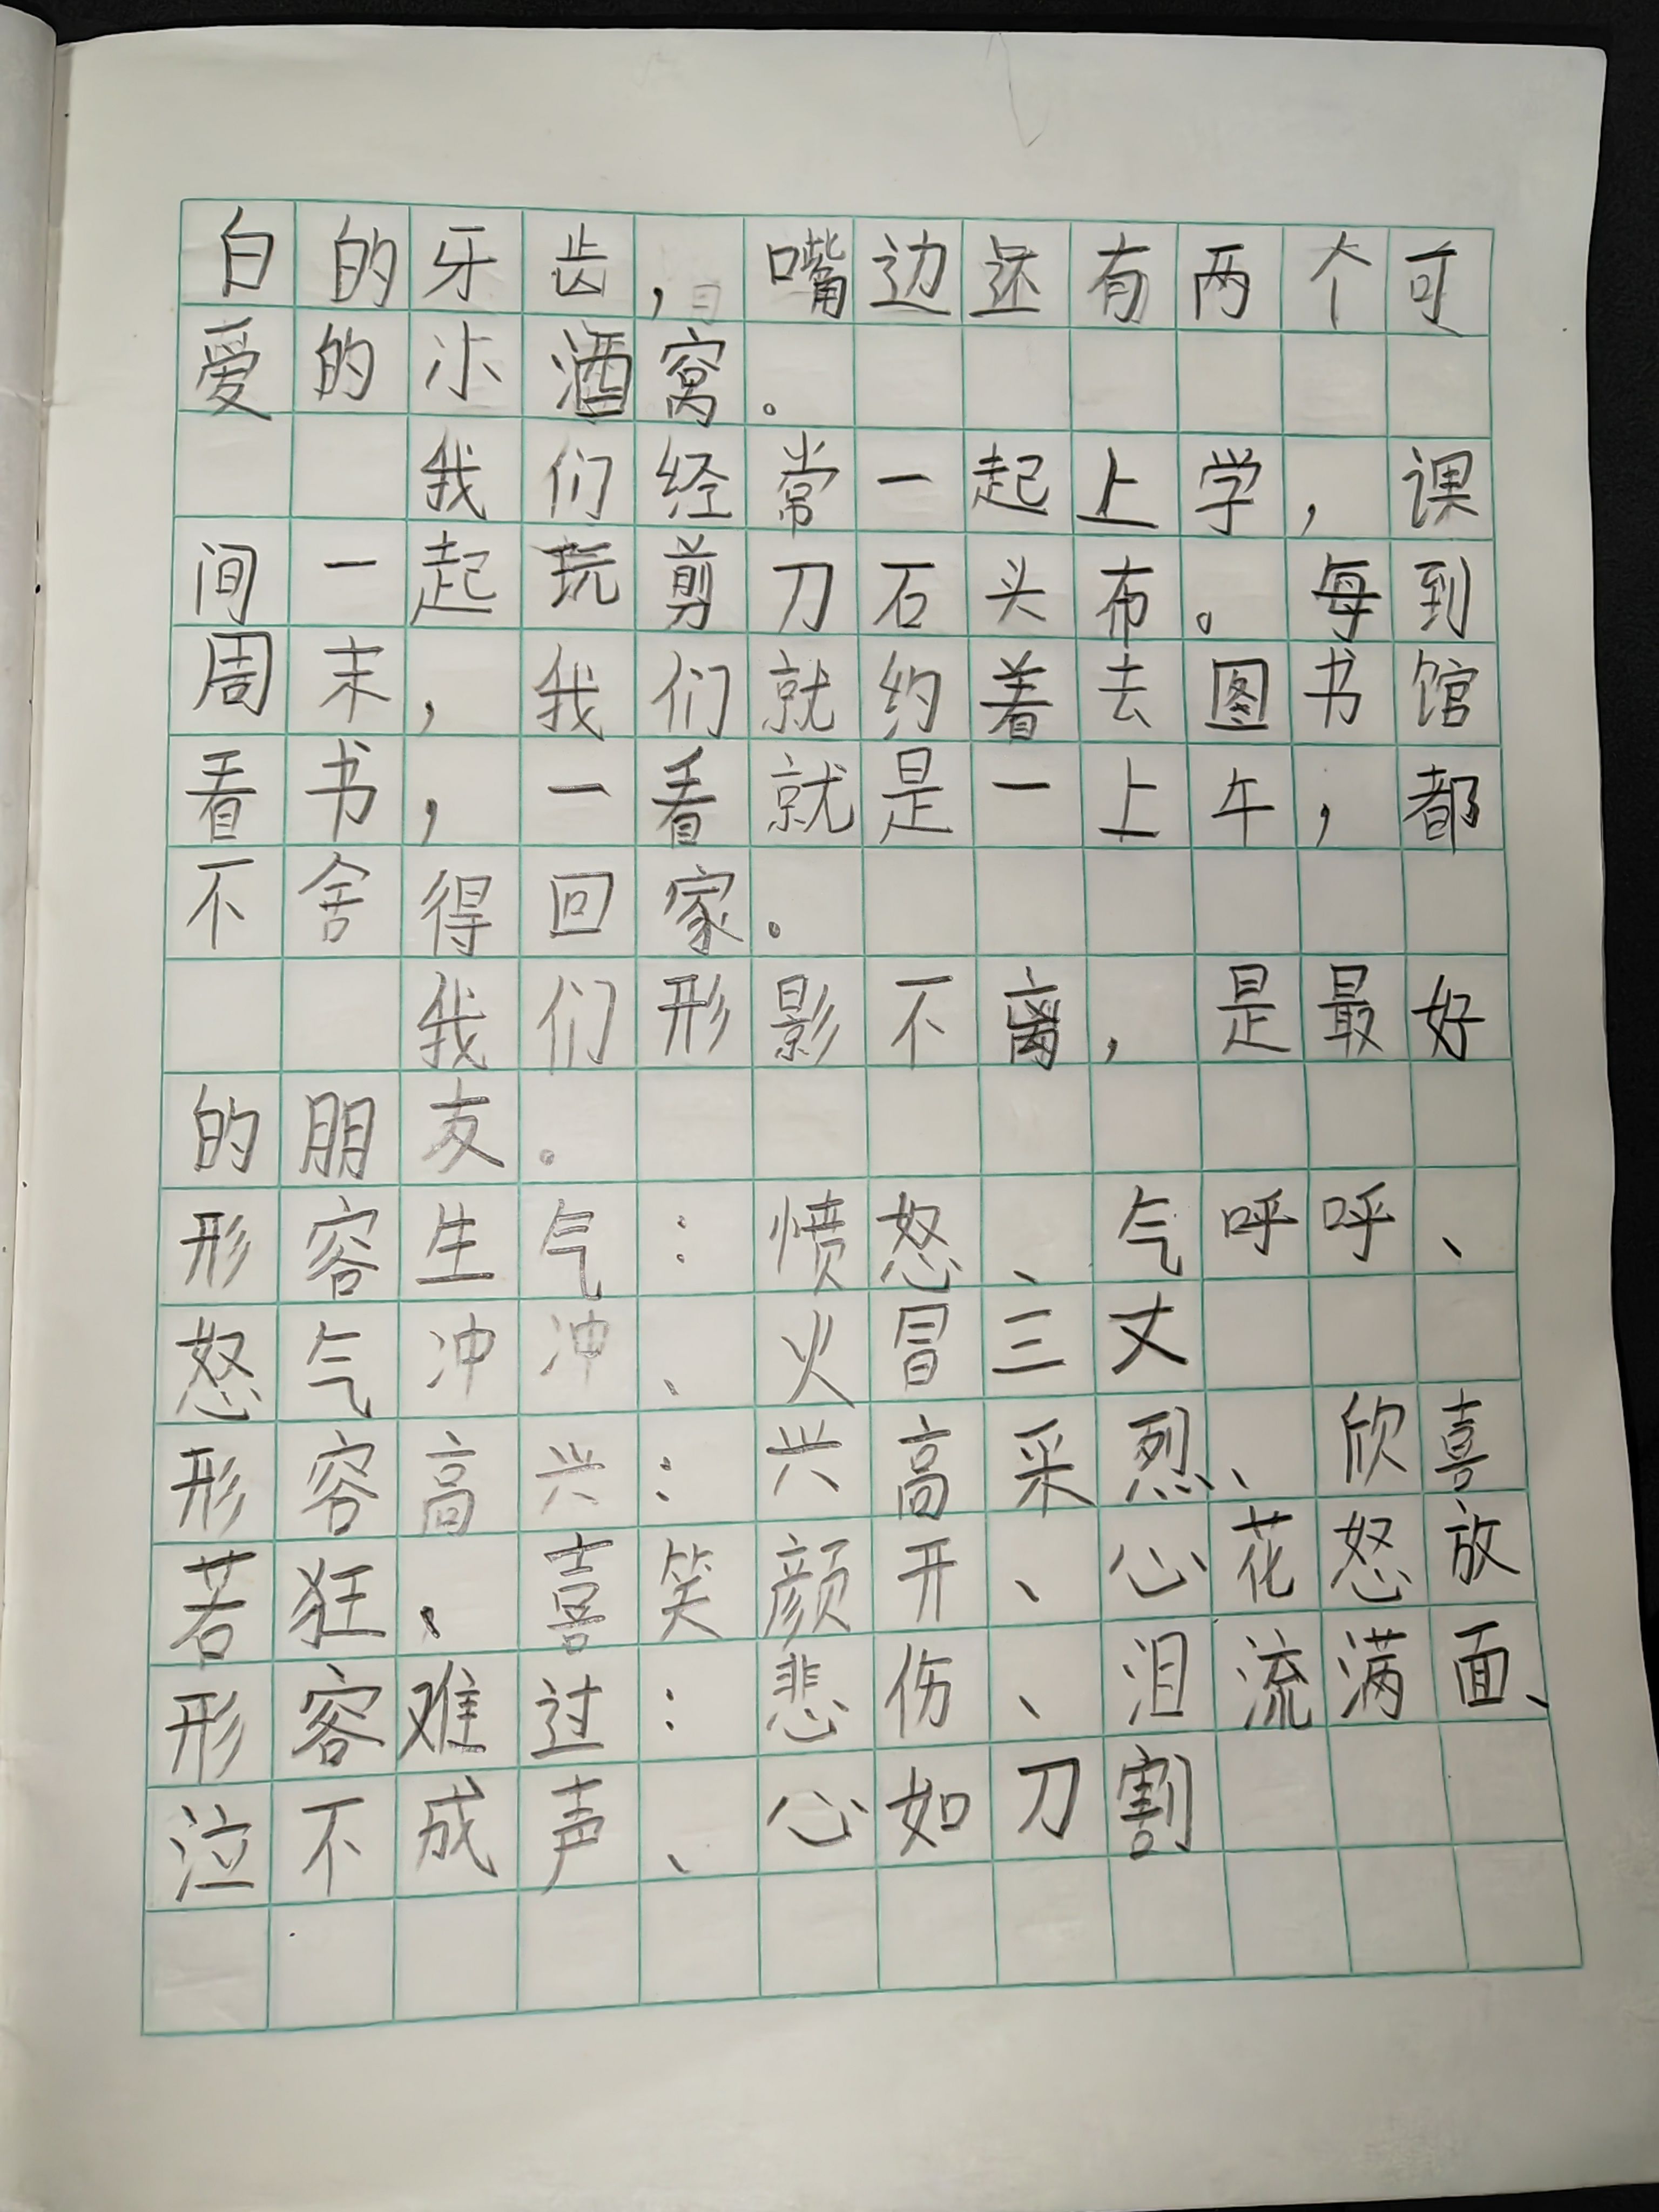 白的牙齿，嘴边还有两个可
爱的小酒窝。
我们经常一起上学，课
间一起玩剪刀石头布。每到
周末，我们就约着去图书馆
看书，一看就是一上午，都
不舍得回家。
我们形影不离，是最好
的朋友。
形容生气：愤怒、气呼呼、
怒气冲冲、火冒三丈
形容高兴：兴高采烈、欣喜
若狂、喜笑颜开、心花怒放
形容难过：悲伤、泪流满面、
泣不成声、心如刀割